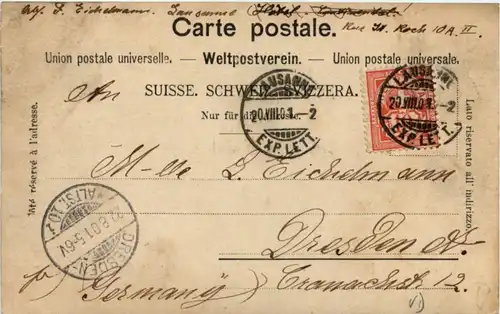 S. Eichelmann, Lausanne
Carte postale.
Union postale universelle. — Weltpostverein. — Union postale universale.
SUISSE. SCHWEIZ. SVIZZERA.
An
Nur für die
LAUSANNE
20.VIII.01. -2
EXP. LETT.
LAUSANNE
20.VIII.01. -2
EXP. LETT.
Côté réservé à l'adresse.
Lato riservato all' indirizzo.
M-lle L. Eichelmann
DRESDEN-
ALTST. 10
21.8.01. 5-6 V.
Dresden A.
Germany) Cranachstr 12.